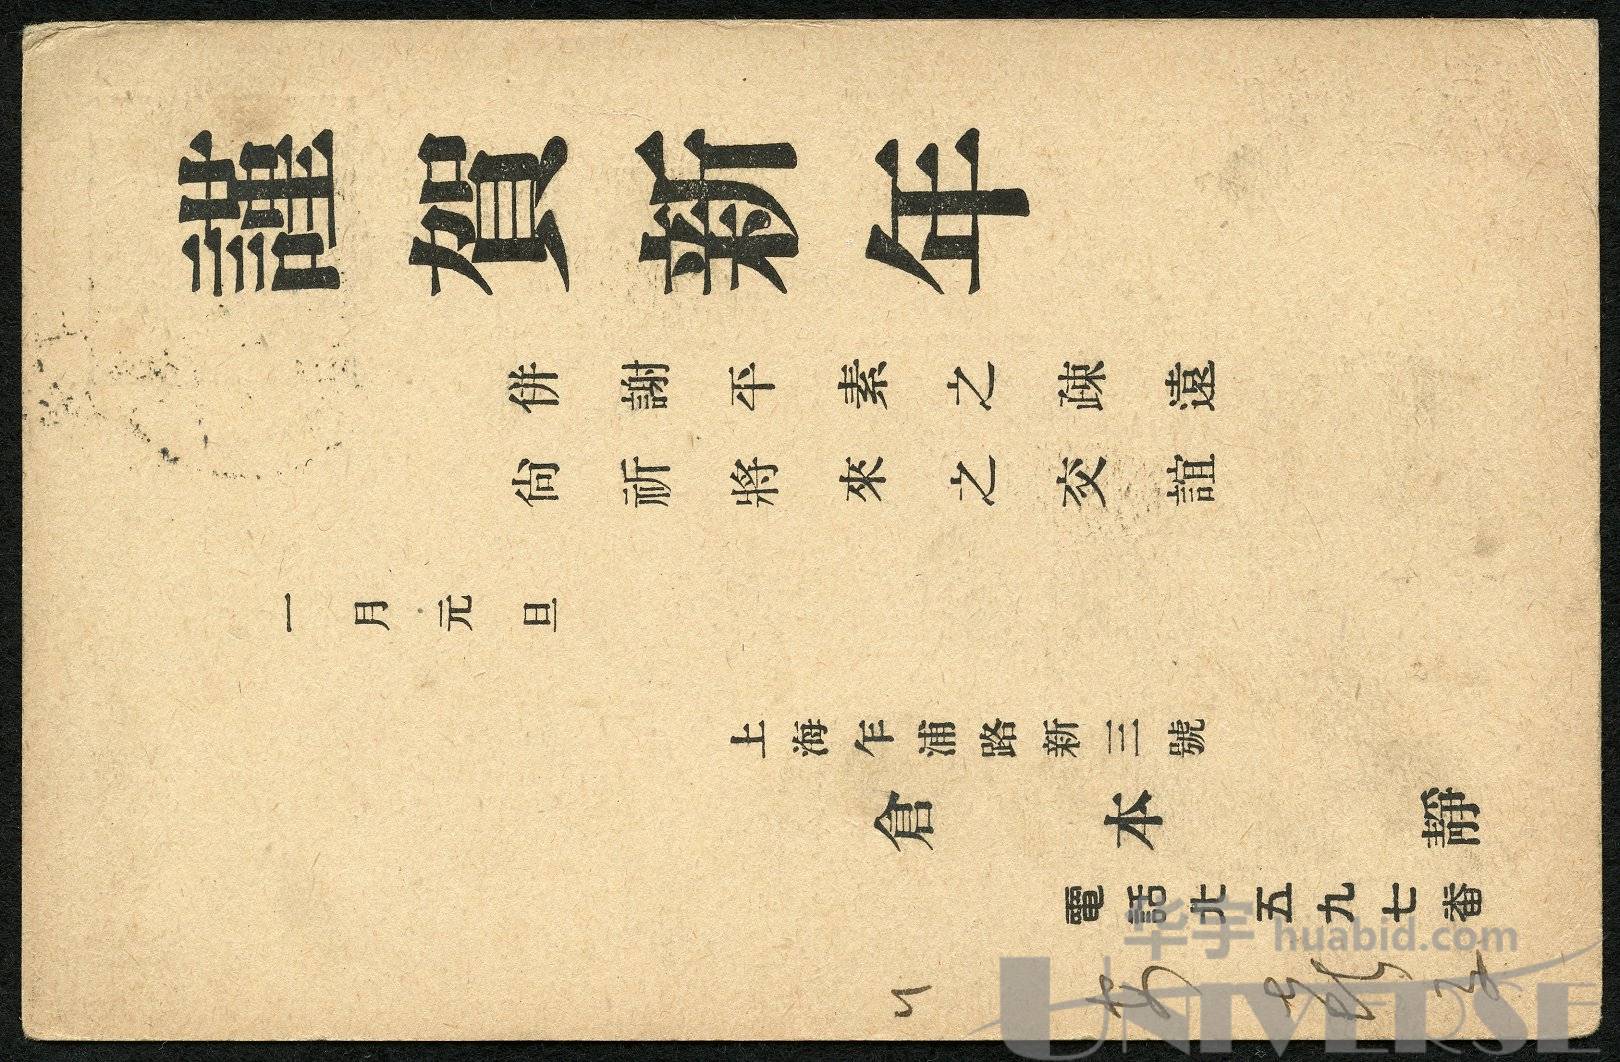 謹賀新年
併謝平素之疎遠
尙祈將來之交誼
一月元旦
上海乍浦路新三號
倉本靜
電話北五九七番
华宇 huabid.com
UNIVERSE